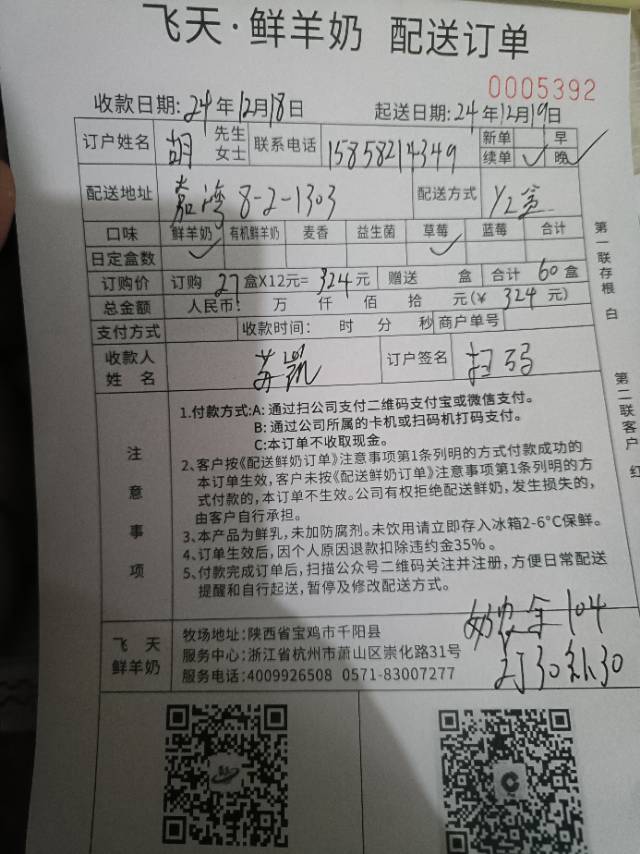 飞天·鲜羊奶 配送订单
0005392
收款日期:24年12月18日 起送日期:24年12月19日
订户姓名 胡 先生 女士 联系电话 15858214349 新单 早
续单 ✓ 晚 ✓
配送地址 嘉湾8-2-1303 配送方式
口味 鲜羊奶 ✓ 有机鲜羊奶 麦香 益生菌 草莓 ✓ 蓝莓 合计
日定盒数
订购价 订购 27 盒X12元= 324 元 赠送 盒 合计 60 盒
总金额 人民币: 万 仟 佰 拾 元(¥ 324 元)
支付方式 收款时间: 时 分 秒 商户单号
收款人 姓名 订户签名 扫码
注意事项
1.付款方式:A: 通过扫公司支付二维码支付宝或微信支付。
B: 通过公司所属的卡机或扫码机打码支付。
C:本订单不收取现金。
2、客户按《配送鲜奶订单》注意事项第1条列明的方式付款成功的
本订单生效,客户未按《配送鲜奶订单》注意事项第1条列明的方
式付款的,本订单不生效。公司有权拒绝配送鲜奶,发生损失的,
由客户自行承担。
3、本产品为鲜乳,未加防腐剂。未饮用请立即存入冰箱2-6°C保鲜。
4、订单生效后,因个人原因退款扣除违约金35%。
5、付款完成订单后,扫描公众号二维码关注并注册,方便日常配送
提醒和自行起送,暂停及修改配送方式。
104
订30补30
飞天 鲜羊奶
牧场地址:陕西省宝鸡市千阳县
服务中心:浙江省杭州市萧山区崇化路31号
服务电话:4009926508 0571-83007277
第一联存根 白
第二联客户 红